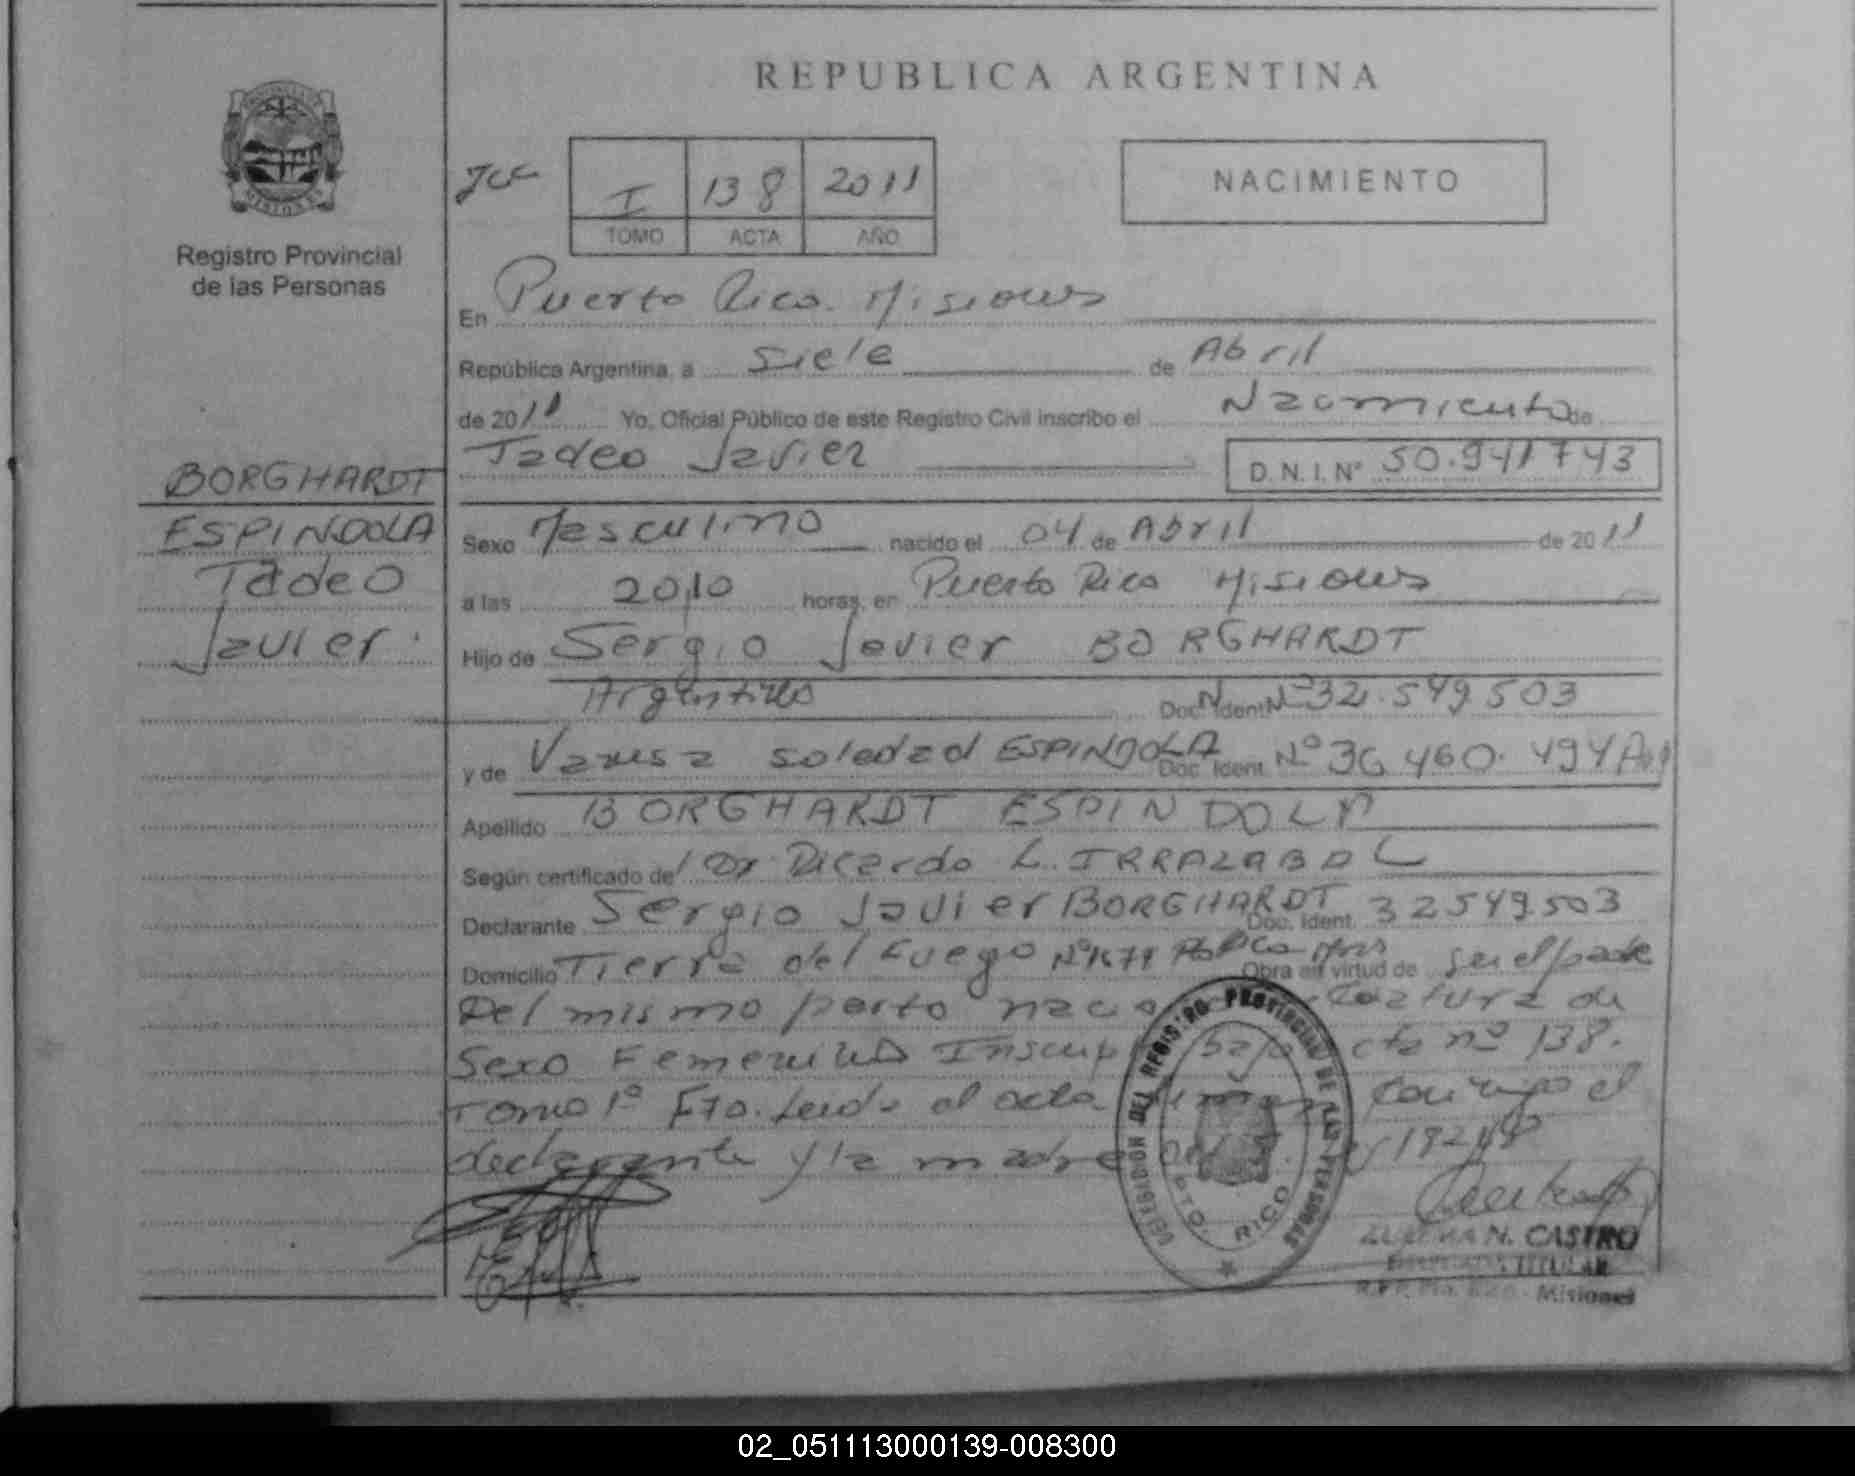 REPUBLICA ARGENTINA
PROVINCIA DE
MISIONES
Registro Provincial
de las Personas
I 138 2011
TOMO ACTA AÑO
NACIMIENTO
En Puerto Rico. Misiones
República Argentina, a Siete de Abril
de 2011 Yo, Oficial Público de este Registro Civil inscribo el Nacimiento de
Tadeo Javier D.N.I.Nº 50.941743
BORGHARDT
ESPINDOLA
Tadeo
Javier.
Sexo Masculino nacido el 04 de Abril de 2011
a las 20,10 horas, en Puerto Rico Misiones
Hijo de Sergio Javier BORGHARDT
Argentino Doc. Ident. Nº 32.549.503
y de Vanesa Soledad ESPINDOLA Doc. Ident. Nº 36 460.494
Apellido BORGHARDT ESPINDOLA
Según certificado del Dr Ricardo L. IRRAZABAL
Declarante Sergio Javier BORGHARDT Doc. Ident. 32549.503
Domicilio Tierra del Fuego Obra en virtud de ser el padre
Del mismo parto criatura de
Sexo Femenino bajo nº 138.
Tomo 1º Fto. Leida el acta conmigo el
declarante y la madre
DELEGACION DEL REGISTRO PROVINCIAL DE LAS PERSONAS
PTO. RICO
ZULEMA N. CASTRO
DELEGADA TITULAR
R.P.P. Pto. Rico - Misiones
02_051113000139-008300